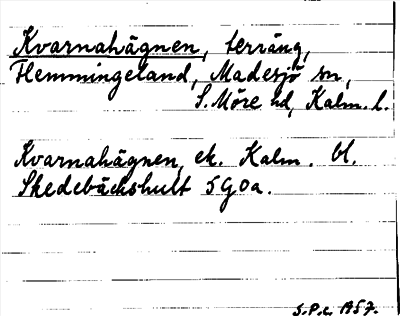 Kvarnahägnen, terräng,
Flemmingeland, Madesjö sn,
S. Möre hd, Kalm. l.
Kvarnahägnen, ek. Kalm. bl.
Skedebäckshult 5G0a.
S.P.c. 1957.